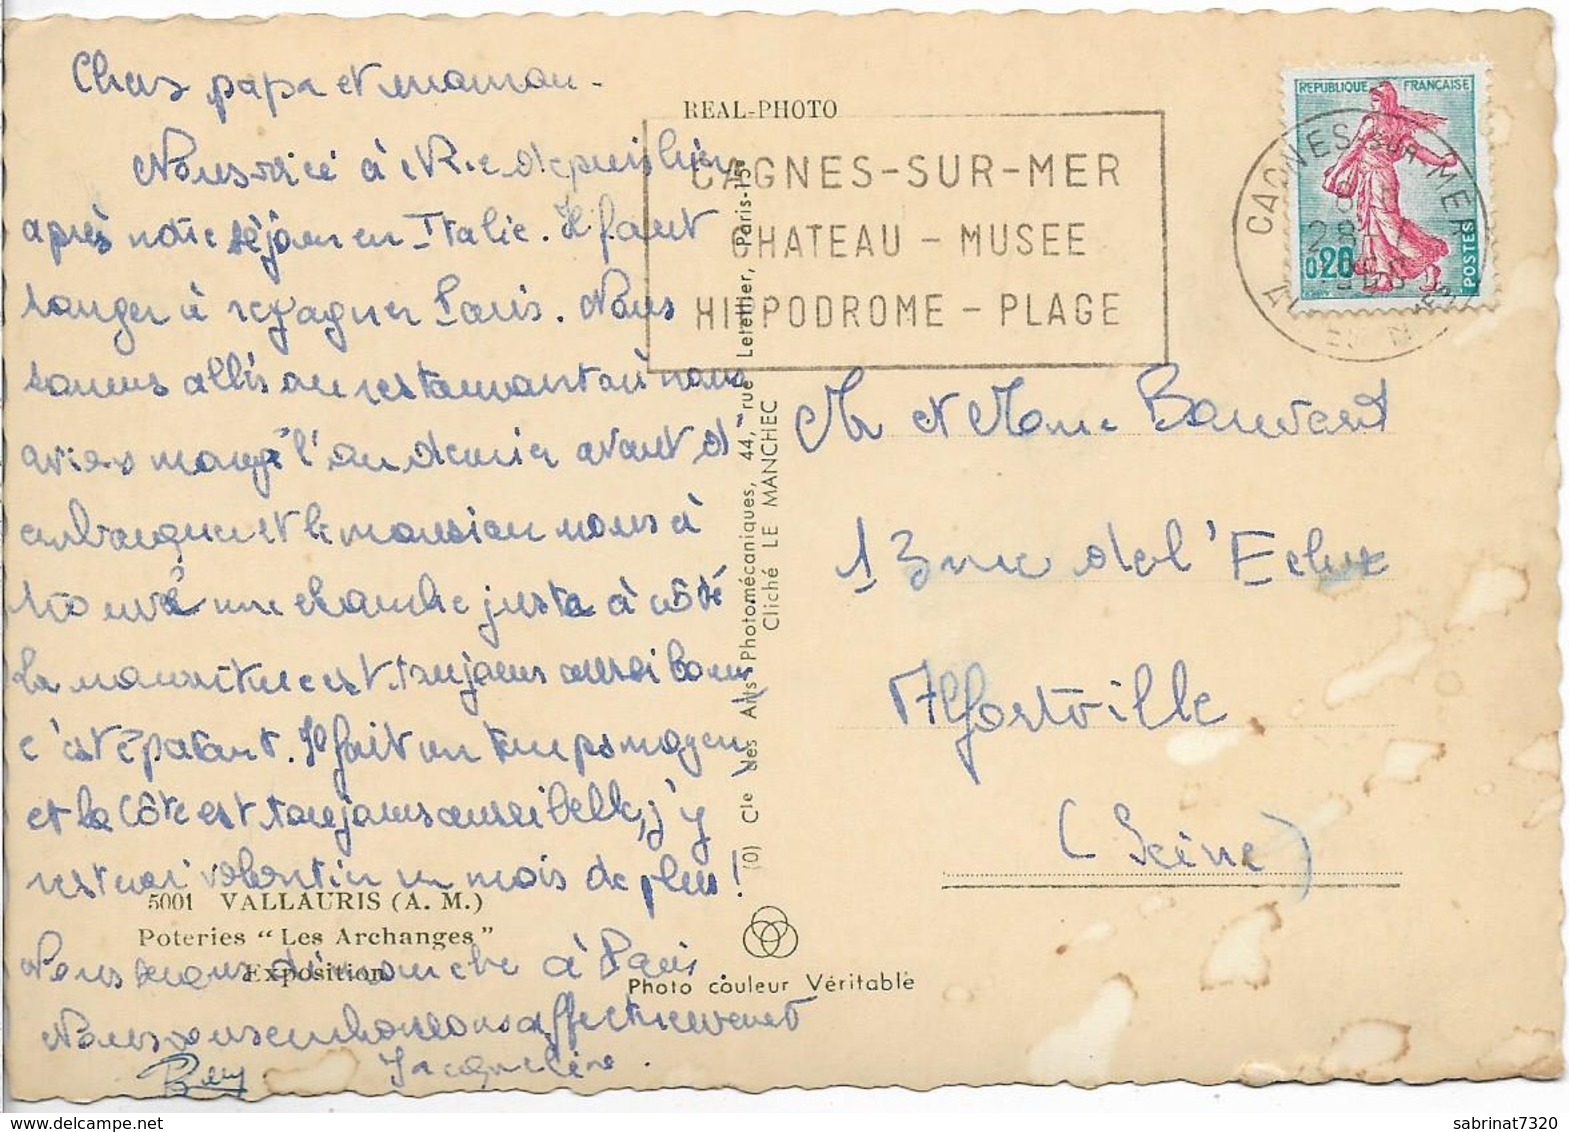 Chers papa et maman -
Nous voici à Nice depuis hier
après notre séjour en Italie. Il faut
songer à regagner Paris. Nous
sommes allés au restaurant où nous
avions mangé l'an dernier avant d'
embarquer et le monsieur nous à
trouvé une chambre juste à côté
La nourriture est toujours aussi bonne
c'est épatant. Il fait un temps moyen
et la Côte est toujours aussi belle, j'y
resterai volontier un mois de plus!
Nous serons dimanche à Paris
Nous vous embrassons affectueusement
Jacqueline.
5001 VALLAURIS (A. M.)
Poteries " Les Archanges "
Exposition
REAL-PHOTO
(O) Cie des Arts Photomécaniques, 44, rue Letellier, Paris-15e
Cliché LE MANCHEC
Photo couleur Véritable
CAGNES-SUR-MER
CHATEAU - MUSEE
HIPPODROME - PLAGE
REPUBLIQUE FRANÇAISE
0,20
POSTES
CAGNES SUR MER
Mr et Mme Bouvard
13 rue de l'Ecluse
Alfortville
(Seine)
sabrinat7320